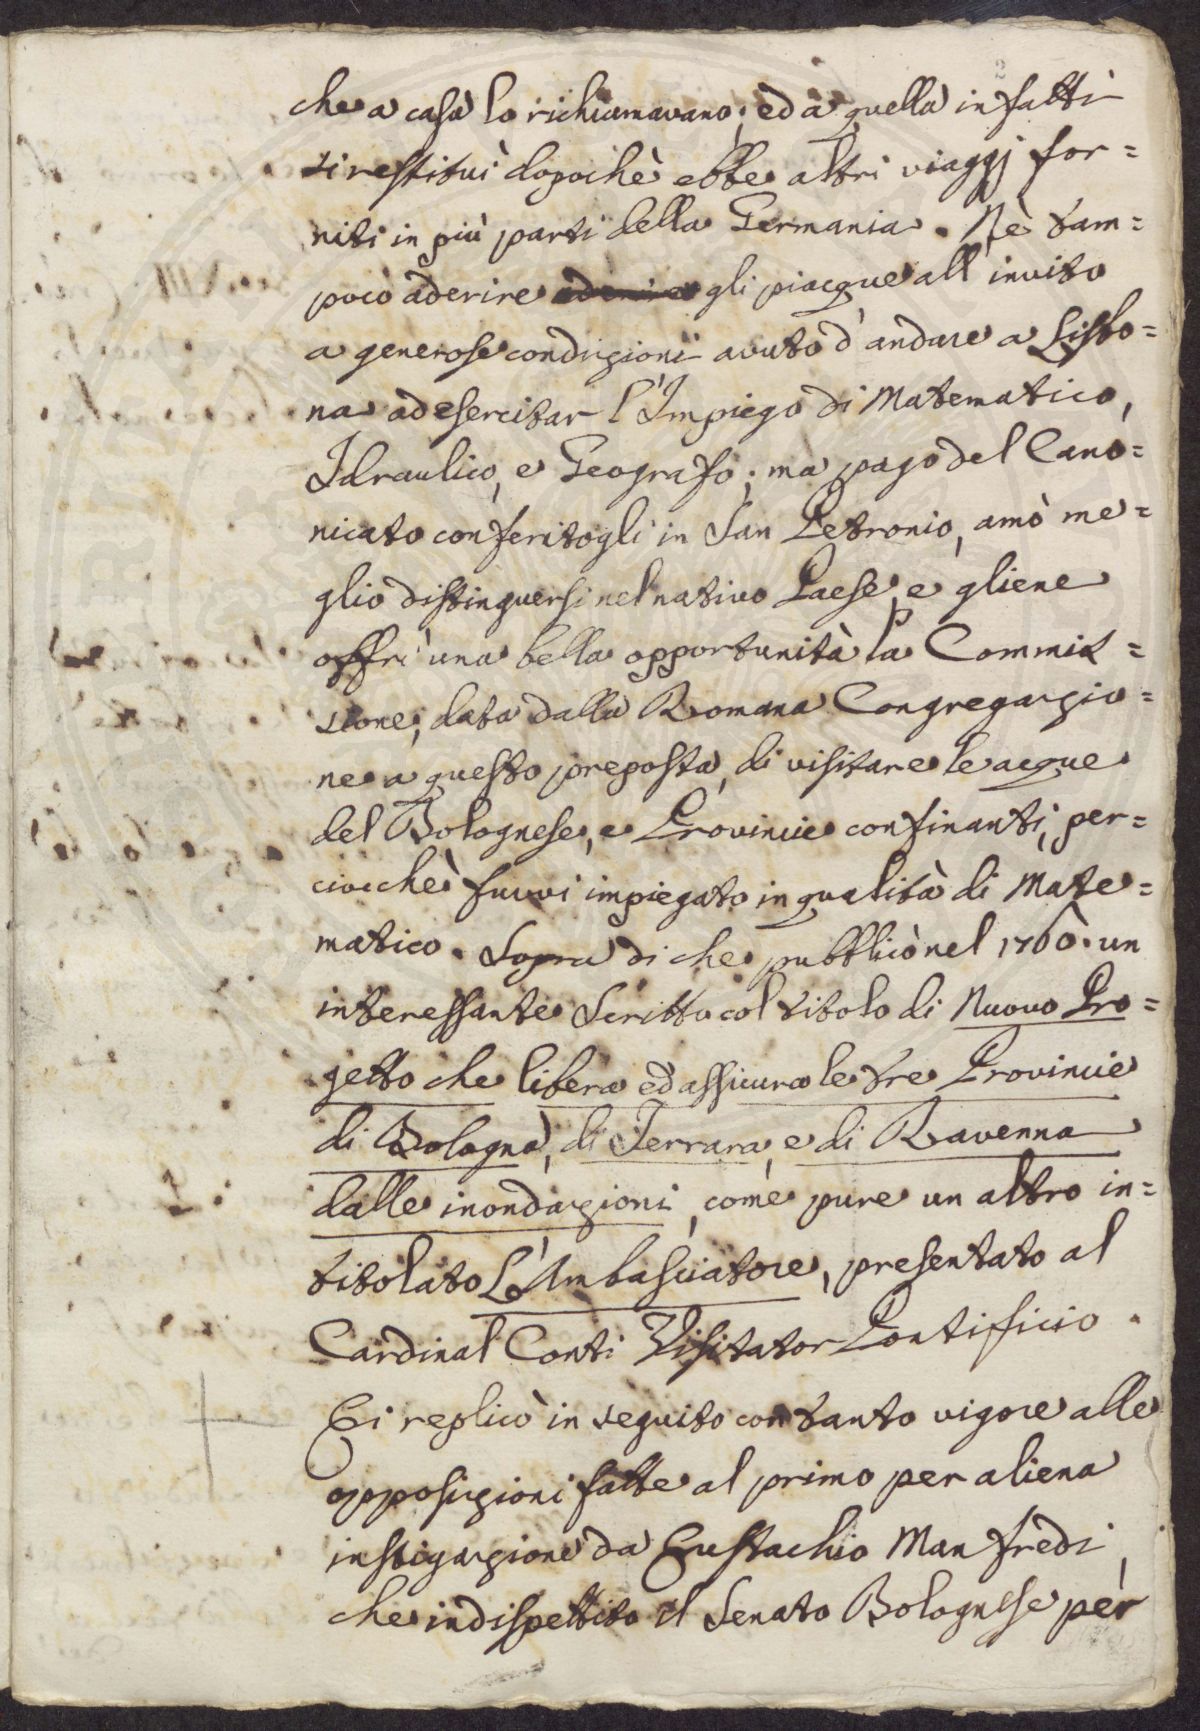 che a casa lo richiamavano; ed a quella in fatti
si restituì dopoichè ebbe altri viaggj for=
niti in più parti della Germania. Nè tam=
poco aderire gli piacque all'invito
a generose condizioni avuto d'andare a Lisbo=
na ad esercitar l'Impiego di Matematico,
Idraulico, e Geografo; ma pago del Cano=
nicato conferitogli in San Petronio, amò me=
glio distinguersi nel nativo Paese, e gliene
offrì una bella opportunità la Commis=
sione, data dalla Romana Congregazio=
ne a questo preposta, di visitare le acque
del Bolognese, e Provincie confinanti, per=
ciocchè fuvvi impiegato in qualità di Mate=
matico. Sopra di che pubblicò nel 1760. un
interessante Scritto col titolo di Nuovo Pro=
getto che libera ed assicura le tre Provincie
di Bologna, di Ferrara, e di Ravenna
dalle inondazioni, come pure un altro in=
titolato L'Ambasciatore, presentato al
Cardinal Conti Visitator Pontificio.
Ei replicò in seguito con tanto vigore alle
opposizioni fatte al primo per aliena
instigazione da Eustachio Manfredi,
che indispettito il Senato Bolognese per